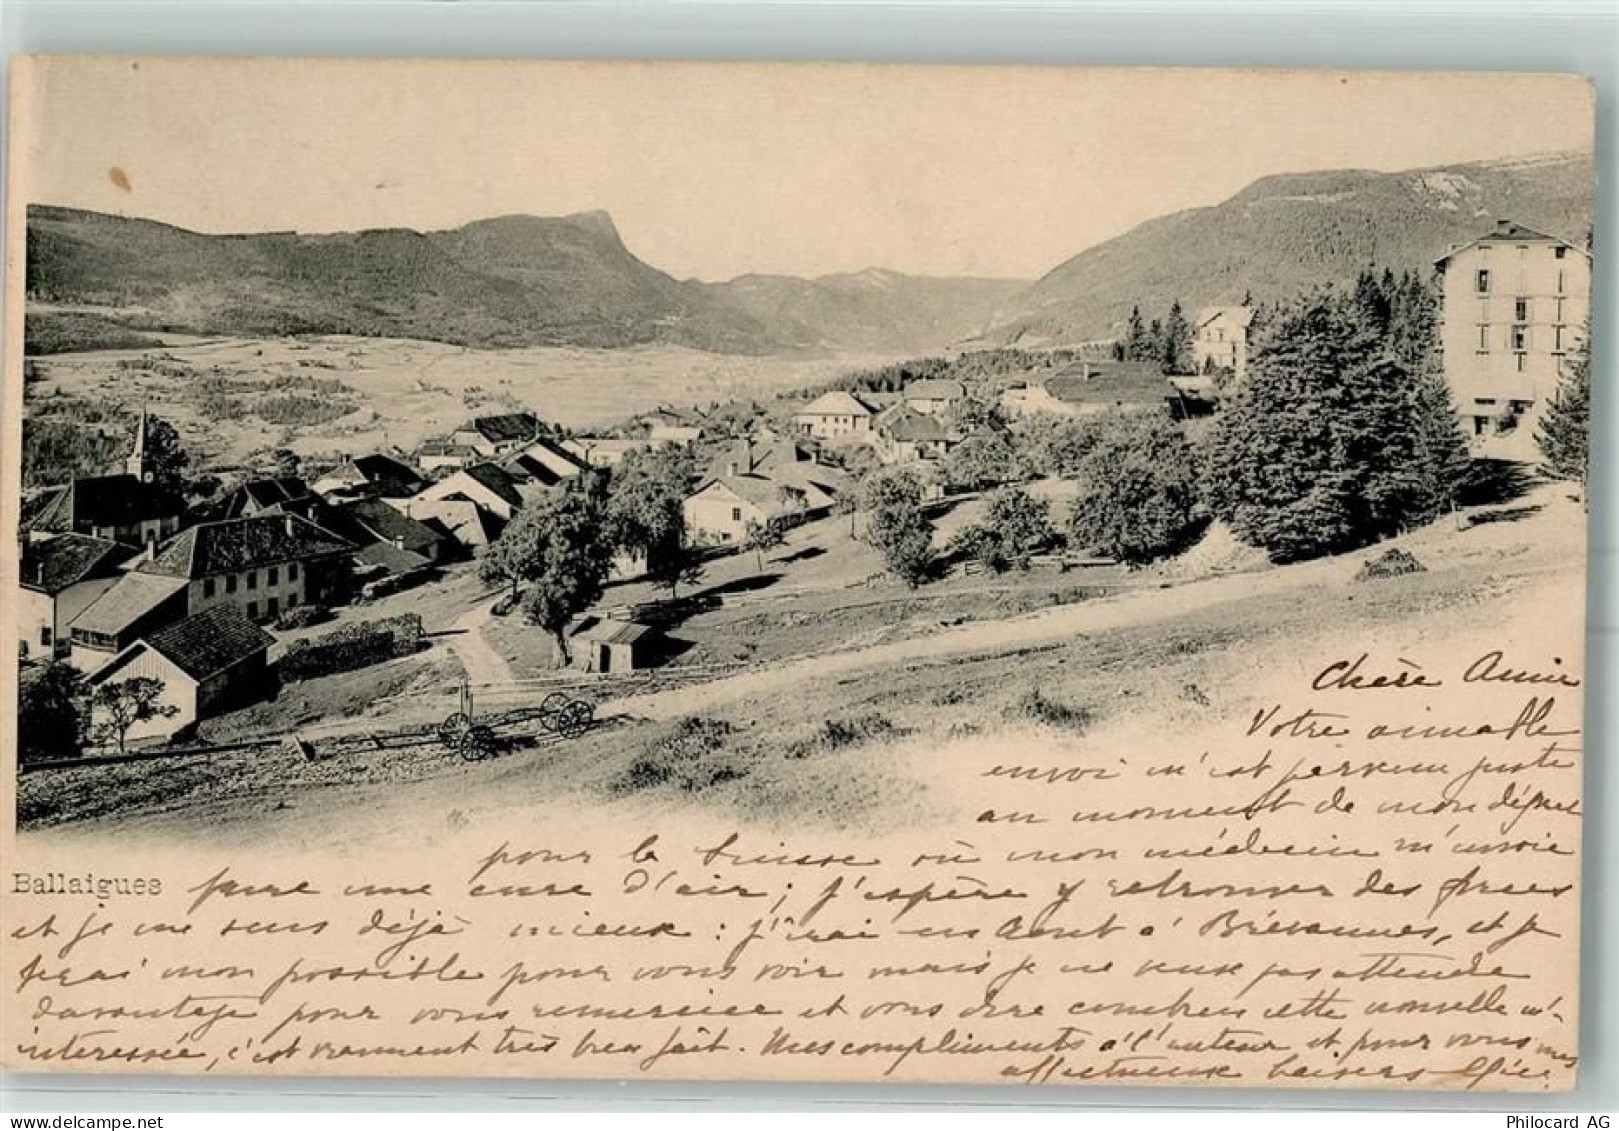 Chère Amie
Votre aimable
envoi m'est parvenu juste
au moment de mon départ
pour la Suisse où mon médecin m'envoie
Ballaigues
faire une cure d'air; j'espère y retrouver des forces
et je me sens déjà mieux: j'irai en Août à Brévannes, et je
ferai mon possible pour vous voir mais je ne veux pas attendre
davantage pour vous remercier et vous dire combien cette nouvelle m'-
intéressée, c'est vraiment très bien fait. Mes compliments à l'auteur et pour vous mes
affectueux baisers
Philocard AG